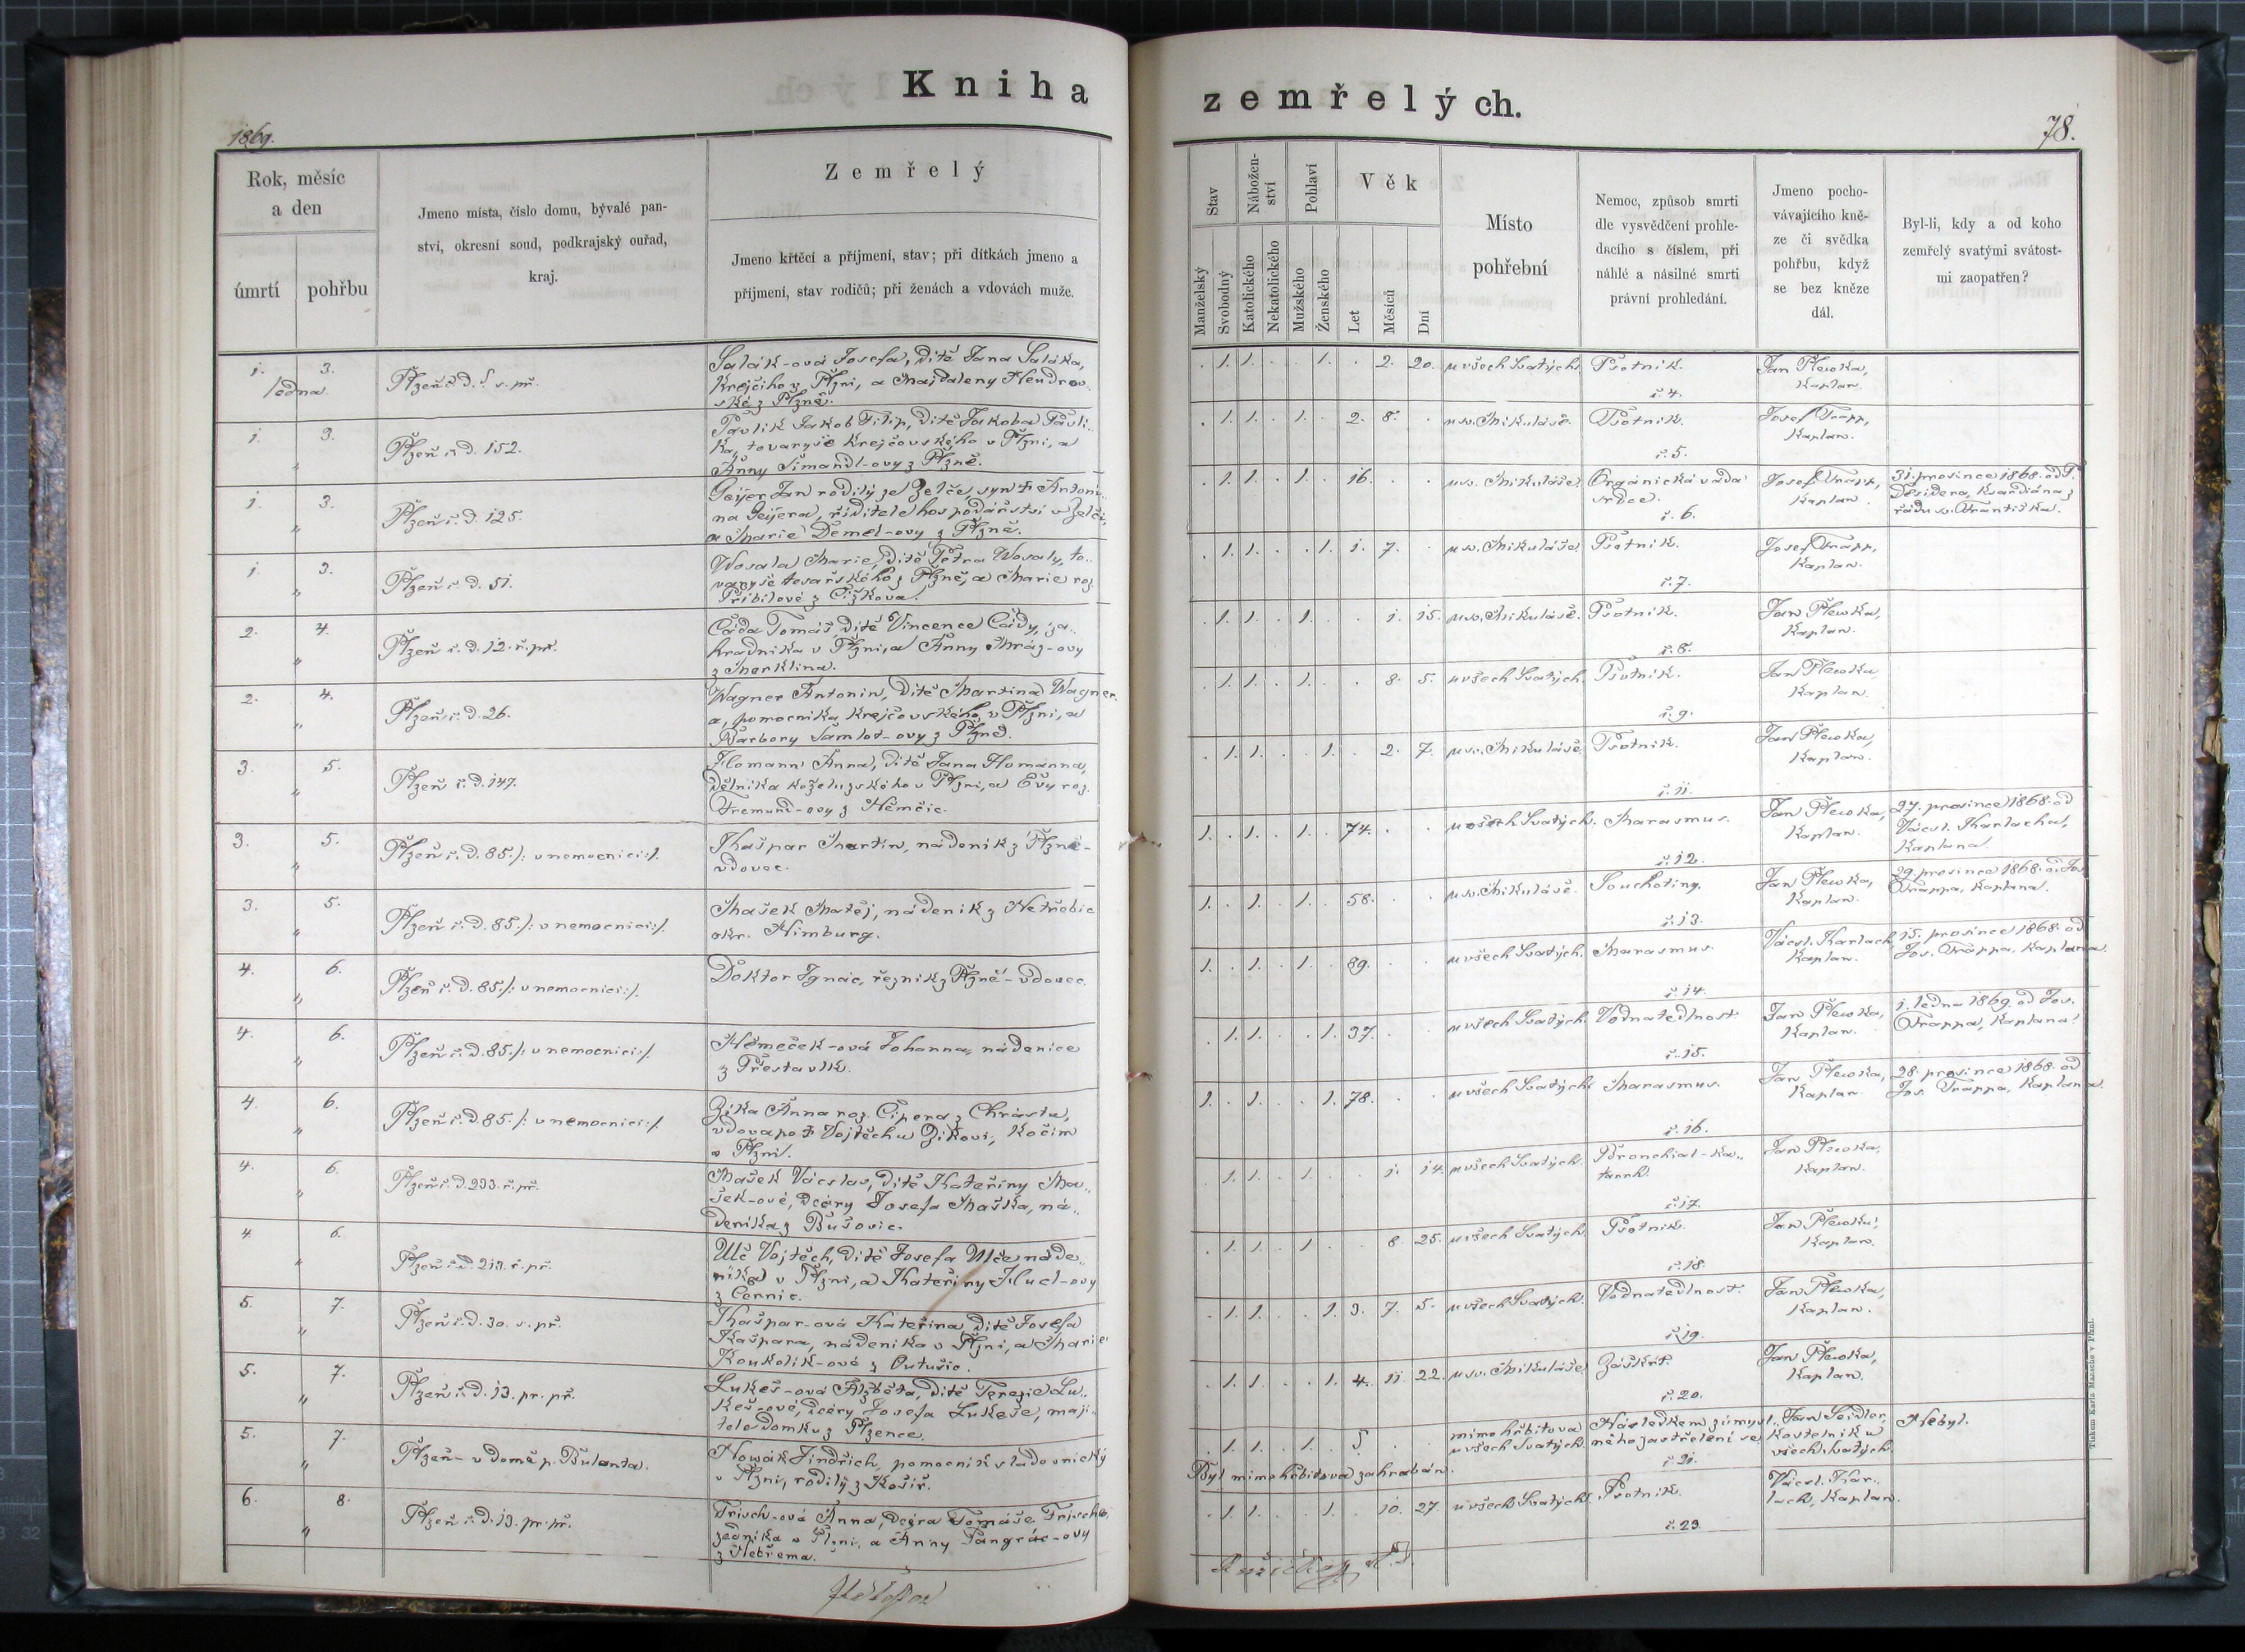 Kniha
zemřelých.
1869.
78.
Rok, měsíc
a den
úmrtí
pohřbu
Jmeno místa, číslo domu, bývalé pan-
ství, okresní soud, podkrajský ouřad,
kraj.
Zemřelý
Jmeno křtěcí a příjmení, stav; při dítkách jmeno a
příjmení, stav rodičů; při ženách a vdovách muže.
Stav
Nábožen-
ství
Pohlaví
Věk
Manželský
Svobodný
Katolického
Nekatolického
Mužského
Ženského
Let
Měsíců
Dní
Místo
pohřební
Nemoc, způsob smrti
dle vysvědčení prohle-
dacího s číslem, při
náhlé a násilné smrti
právní prohledání.
Jmeno pocho-
vávajícího kně-
ze či svědka
pohřbu, když
se bez kněze
dál.
Byl-li, kdy a od koho
zemřelý svatými svátost-
mi zaopatřen?
1. 3.
ledna.
Plzeň č. d. s. př.
Salák-ová Josefa, dítě Jana Saláka,
krejčího z Plzni, a Majdaleny Hendrov
ské z Plzně.
. 1. 1. . . 1. . 2. 20. u všech Svatých. Psotník. Jan Plewka,
kaplan.
č. 4.
1. 3.
„
Plzeň č. d. 152.
Pavlík Jakob Filip, dítě Jakoba Pavlí-
ka, tovaryše krejčovského v Plzni, a
Anny Šimandl-ovy z Plzně.
. 1. 1. . 1. . 2. 8. . u sv. Mikuláše. Psotník. Josef Trapp,
kaplan.
č. 5.
1. 3.
„
Plzeň č. d. 125.
Geijer Jan rodilý ze Zelče, syn † Antoní-
na Geijera, ředitele hospodářství v Zelči,
a Marie Demel-ovy z Plzně.
. 1. 1. . 1. . 16. . . u sv. Mikuláše. Organická váda
srdce.
č. 6.
Josef Trapp,
kaplan.
31. prosince 1868. od P.
Desidera, kvardiána z
řádu sv. Františka.
1. 3.
„
Plzeň č. d. 51.
Wosala Marie, dítě Petra Wosaly, to-
varyše tesařského z Plzně, a Marie roz.
Přibilové z Čižkova.
. 1. 1. . . 1. 1. 7. . u sv. Mikuláše. Psotník. Josef Trapp,
kaplan.
č. 7.
2. 4.
„
Plzeň č. d. 12. ř. př.
Čáda Tomáš, dítě Vincence Čády, za-
hradníka v Plzni, a Anny Mráz-ovy
z Merklína.
. 1. 1. . 1. . . 1. 15. u sv. Mikuláše. Psotník. Jan Plewka,
kaplan.
č. 8.
2. 4.
„
Plzeň č. d. 26.
Wagner Antonín, dítě Martina Wagner-
a, pomocníka krejčovského v Plzni, a
Barbory Samlot-ovy z Plzně.
. 1. 1. . 1. . . 8. 5. u všech Svatých. Psotník. Jan Plewka
kaplan.
č. 9.
3. 5.
„
Plzeň č. d. 147.
Homann Anna, dítě Jana Homanna,
dělníka koželuzského v Plzni, a Evy roz.
Fremund-ovy z Němčic.
. 1. 1. . . 1. . 2. 7. u sv. Mikuláše. Psotník. Jan Plewka,
kaplan.
č. 11.
3. 5.
„
Plzeň č. d. 85. /: v nemocnici :/.
Kašpar Martin, nádeník z Plzně-
vdovec.
1. . 1. . 1. . 74. . . u všech Svatých. Marasmus. Jan Plewka,
kaplan.
č. 12.
27. prosince 1868. od
Vácsl. Karlacha,
kaplana.
3. 5.
„
Plzeň č. d. 85. /: v nemocnici :/.
Mašek Matěj, nádeník z Netřebic
okr. Nimburg.
1. . 1. . 1. . 58. . . u sv. Mikuláše. Souchotiny. Jan Plewka,
kaplan.
č. 13.
29. prosince 1868. od Jos.
Trappa, kaplana.
4. 6.
„
Plzeň č. d. 85. /: v nemocnici :/.
Doktor Ignác, řezník z Plzně - vdovec.
1. . 1. . 1. . 89. . . u všech Svatých. Marasmus. Vácsl. Karlach,
kaplan.
č. 14.
15. prosince 1868. od
Jos. Trappa, kaplana.
4. 6.
„
Plzeň č. d. 85. /: v nemocnici :/.
Němeček-ová Johanna, nádenice
z Přestavlk.
. 1. 1. . . 1. 37. . . u všech Svatých. Vodnatedlnost Jan Plewka,
kaplan.
č. 15.
1. ledna 1869. od Jos.
Trappa, kaplana.
4. 6.
„
Plzeň č. d. 85. /: v nemocnici :/.
Zíka Anna roz. Cipera z Chrástu,
vdova po † Vojtěchu Zíkovi, kočím
v Plzni.
1. . 1. . . 1. 78. . . u všech Svatých. Marasmus. Jan Plewka,
kaplan.
č. 16.
28. prosince 1868. od
Jos. Trappa, kaplana.
4. 6.
„
Plzeň č. d. 293. ř. př.
Mašek Vácslav, dítě Kateřiny Ma-
šek-ové, dcery Josefa Maška, ná-
deníka z Bušovic.
. 1. 1. . 1. . . 1. 14. u všech Svatých. Bronchial-ka-
tarrh.
č. 17.
Jan Plewka,
kaplan.
4. 6.
„
Plzeň č. d. 213. ř. př.
Ulč Vojtěch, dítě Josefa Ulče náde-
níka v Plzni, a Kateřiny Hucl-ovy
z Černic.
. 1. 1. . 1. . . 8. 25. u všech Svatých. Psotník. Jan Plewka,
kaplan.
č. 18.
5. 7.
„
Plzeň č. d. 30. s. př.
Kašpar-ová Kateřina dítě Josefa
Kašpara, nádeníka v Plzni, a Marie
Koukolík-ové z Outušic.
. 1. 1. . . 1. 3. 7. 5. u všech Svatých. Vodnatedlnost. Jan Plewka,
kaplan.
č. 19.
5. 7.
„
Plzeň č. d. 13. pr. př.
Lukeš-ová Alžběta, dítě Terezie Lu-
keš-ové, dcery Josefa Lukeše, maji-
tele domku z Plzence.
. 1. 1. . . 1. 4. 11. 22. u sv. Mikuláše. Záškrt. Jan Plewka,
kaplan.
č. 20.
5. 7.
„
Plzeň - v domě p. Bulanta.
Nowák Jindřich, pomocník sladovnický
v Plzni, rodilý z Košíř.
. 1. 1. . 1. . ? . . mimo hřbitova
u všech Svatých.
Následkem zúmysl-
ného zastřelení se
č. 21.
Jan Seidler,
kostelník u
všech Svatých.
Nebyl.
Byl mimo hřbitova zahrabán.
6. 8.
„
Plzeň č. d. 13. pr. př.
Frisch-ová Anna, dcera Tomáše Frische,
zedníka v Plzni, a Anny Pangrác-ovy
z Nebřema.
. 1. 1. . . 1. . 10. 27. u všech Svatých. Psotník. Vácsl. Kar-
lach, kaplan.
č. 23.
Tiskem Karla Maasche v Plzni.